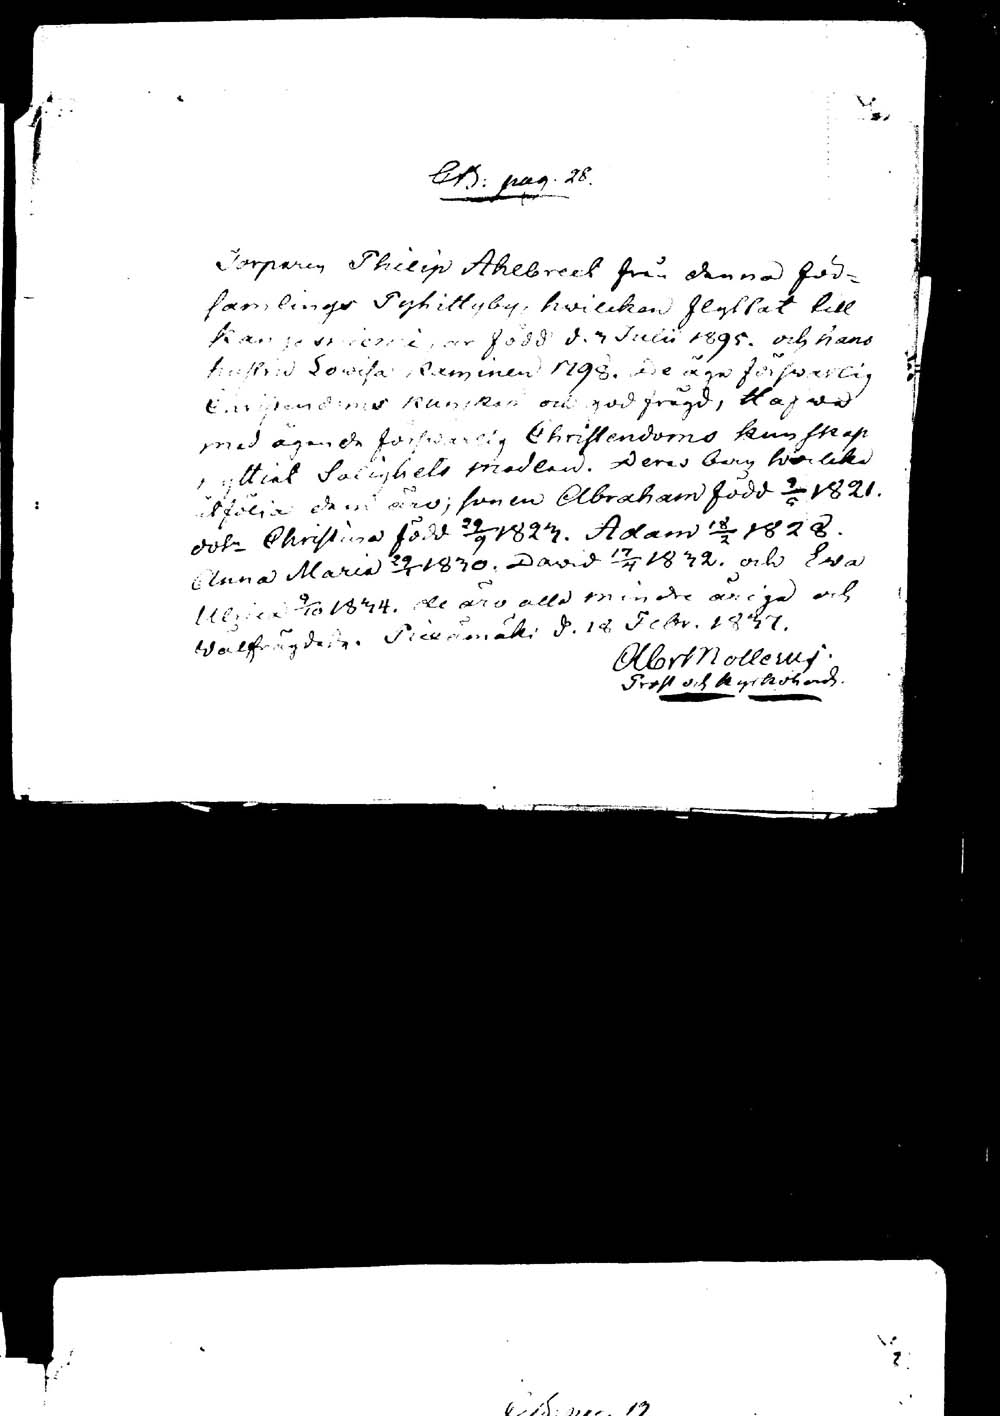 CB. pag. 28.
Torparen Philip Ahlbreck från denna för=
samlings Pyhittyby, hwilcken flyttat till
är född d. 7 Julii 1895. och hans
hustru Lowisa Raminen 1798. De äga förswarlig
Christendoms kunskap och god frägd, Hafwa
med ägande förswarlig Christendoms kunskap
nyttiat Salighets medlen. Deras barn hwilka
åtfölja dem äro; sonen Abraham född 1821.
dotr Christina född 29/9 1827. Adam 18/2 1828.
Anna Maria 1830. David 17/4 1832. och Ewa
Ulrica 9/10 1834. de äro alla mindre åriga och
wälfrägdade. Piexämäki d. 18 Febr. 1837.
Abr Molleruj.
Prost och Kyrkoherde.
pag. 19